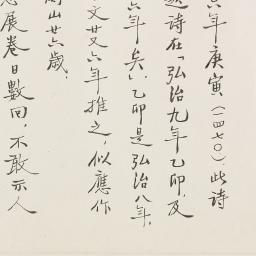 六年庚寅(一四七〇),此詩
詩在「弘治九年乙卯,及
六年矣」,乙卯是弘治八年,
文又六年推之,似應作
山廿六歲。
展卷日數回,不敢示人